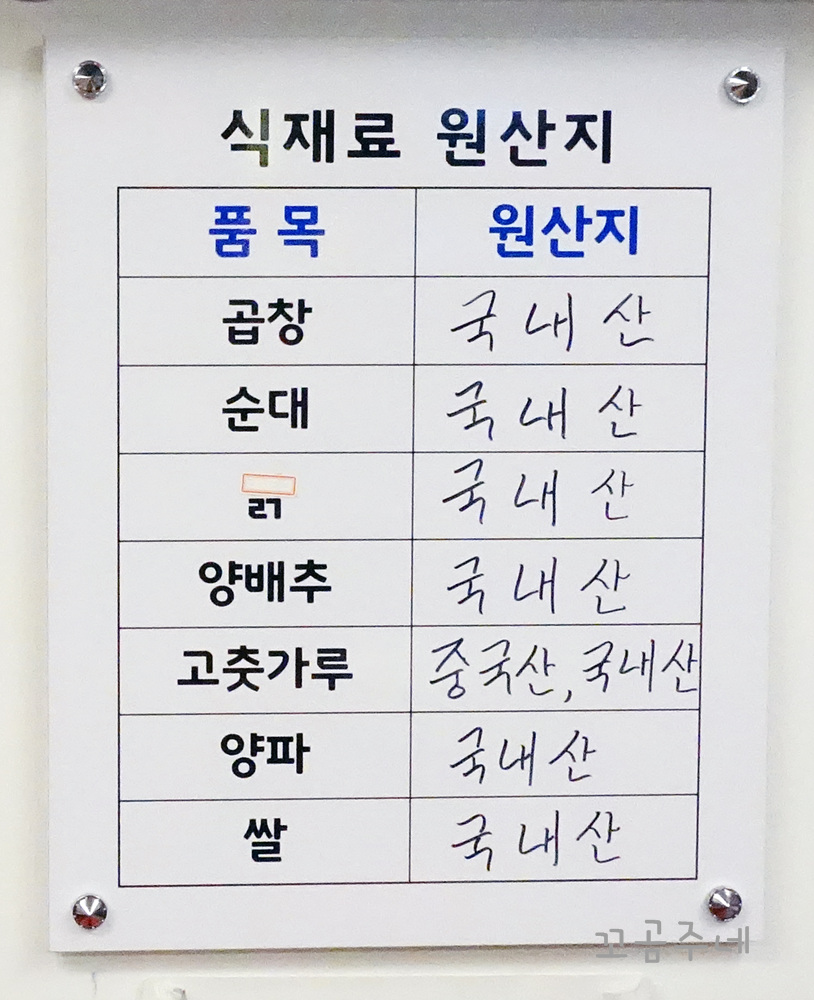 식재료 원산지
품목 원산지
곱창 국내산
순대 국내산
국내산
양배추 국내산
고춧가루 중국산, 국내산
양파 국내산
쌀 국내산
꼬곰주네